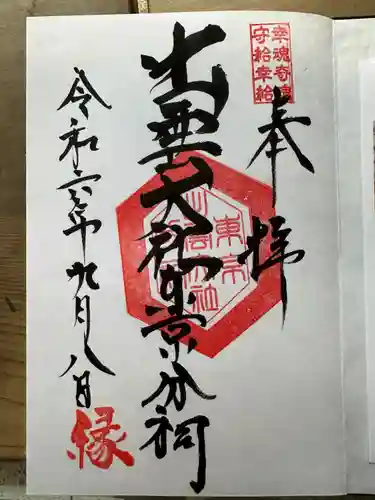 幸魂奇魂
守給幸給
奉拝
出雲大社東京分祠
令和六年九月八日
縁